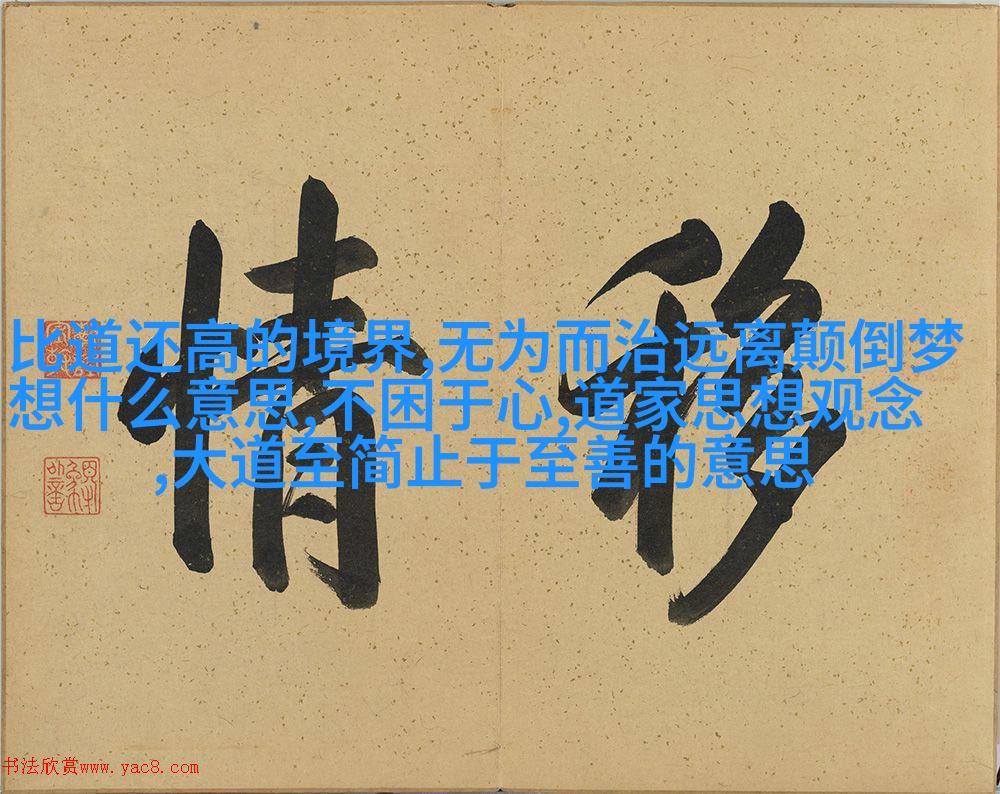 移情
比道还高的境界,无为而治远离颠倒梦
想什么意思,不困于心,道家思想观念
,大道至简止于至善的意思
书法欣赏www.yac8.com